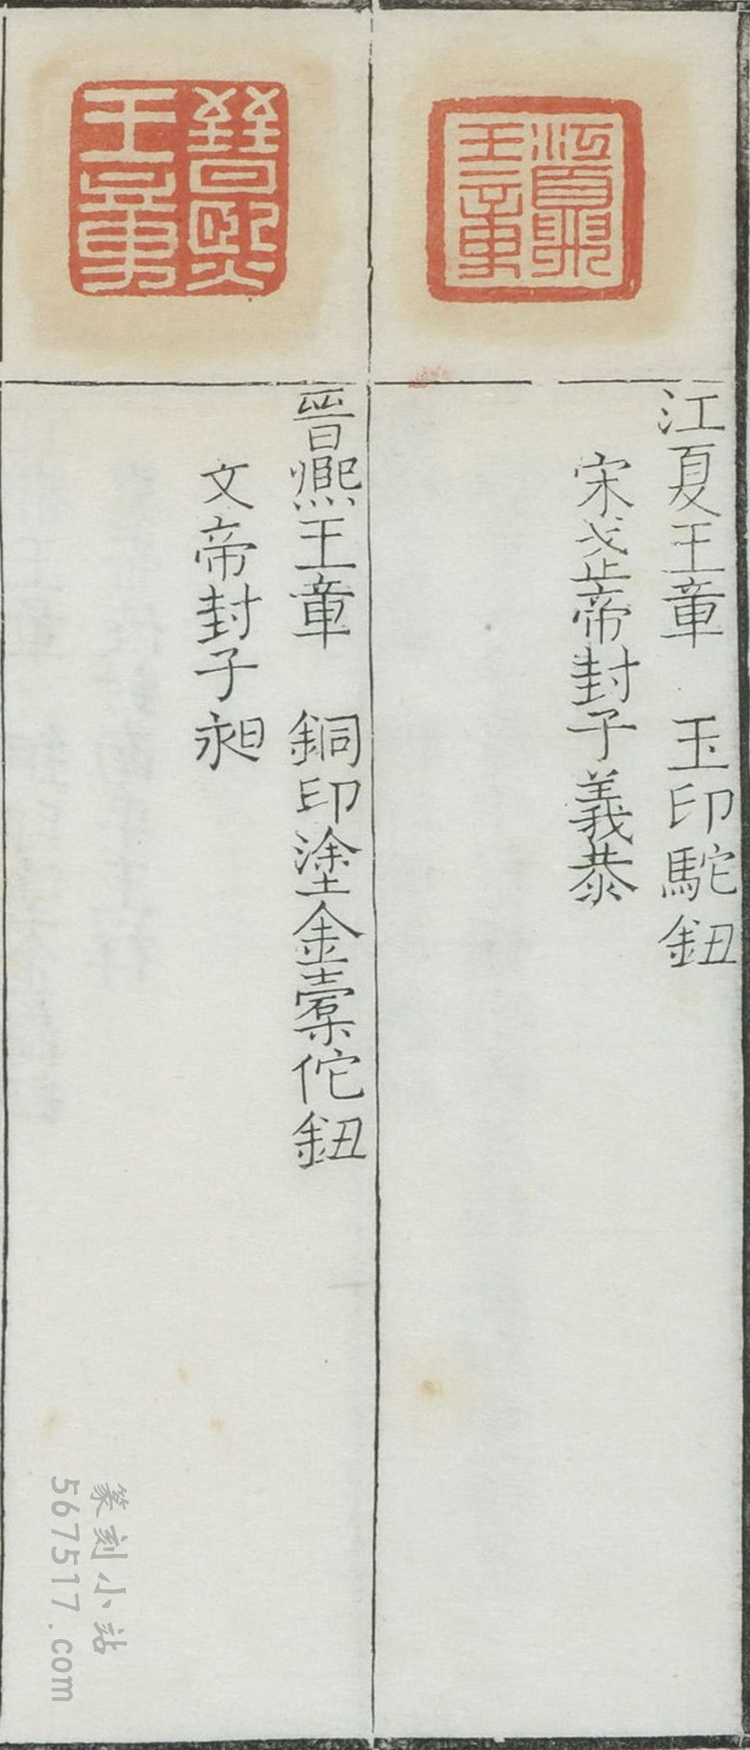 江夏王章
江夏王章 玉印駝鈕
宋武帝封子義恭
晉熙王章
晉熙王章 銅印塗金橐佗鈕
文帝封子昶
篆刻小站
567517.com